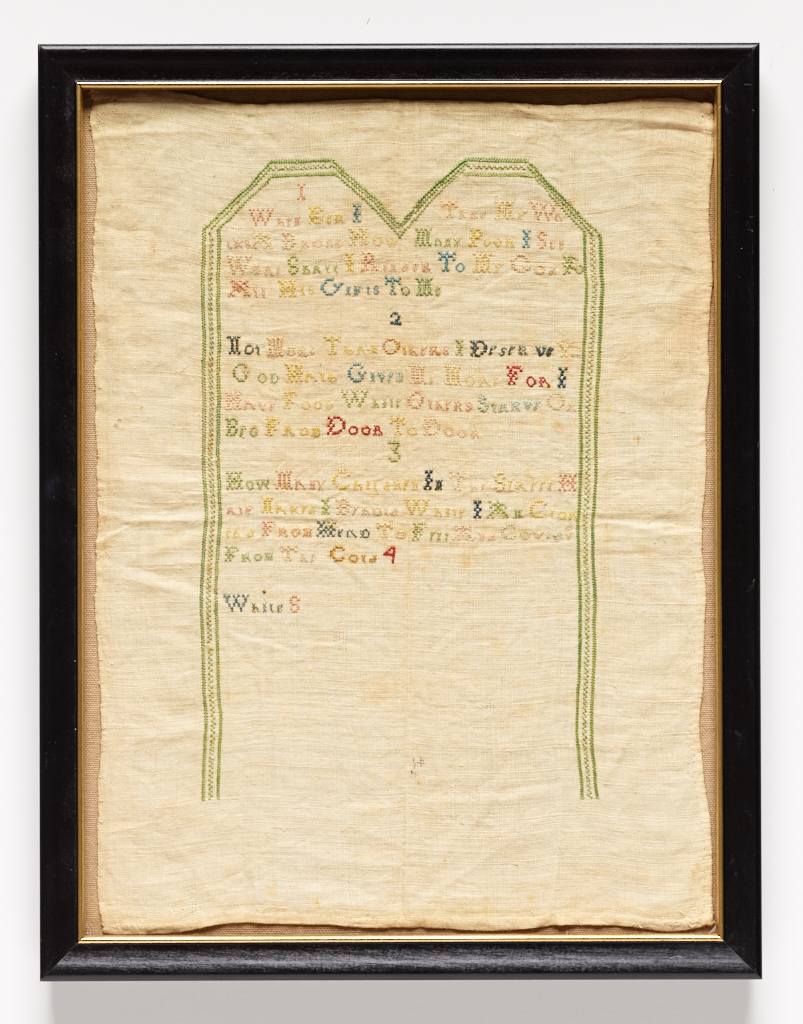 1
When Eer I Take My Wa
lks A Broad How Many Poor I See
What Shall I Render To My God Fo
All His Gifts To Me
2
Not More Than Others I Deserve Ye
God Hath Given Me More For I
Have Food While Others Starve Or
Beg From Door To Door
3
How Many Children In The Street H
alf Naked I Behold While I Am Cloth
ed From Head To Feet And Cover
From The Cold 4
While 8